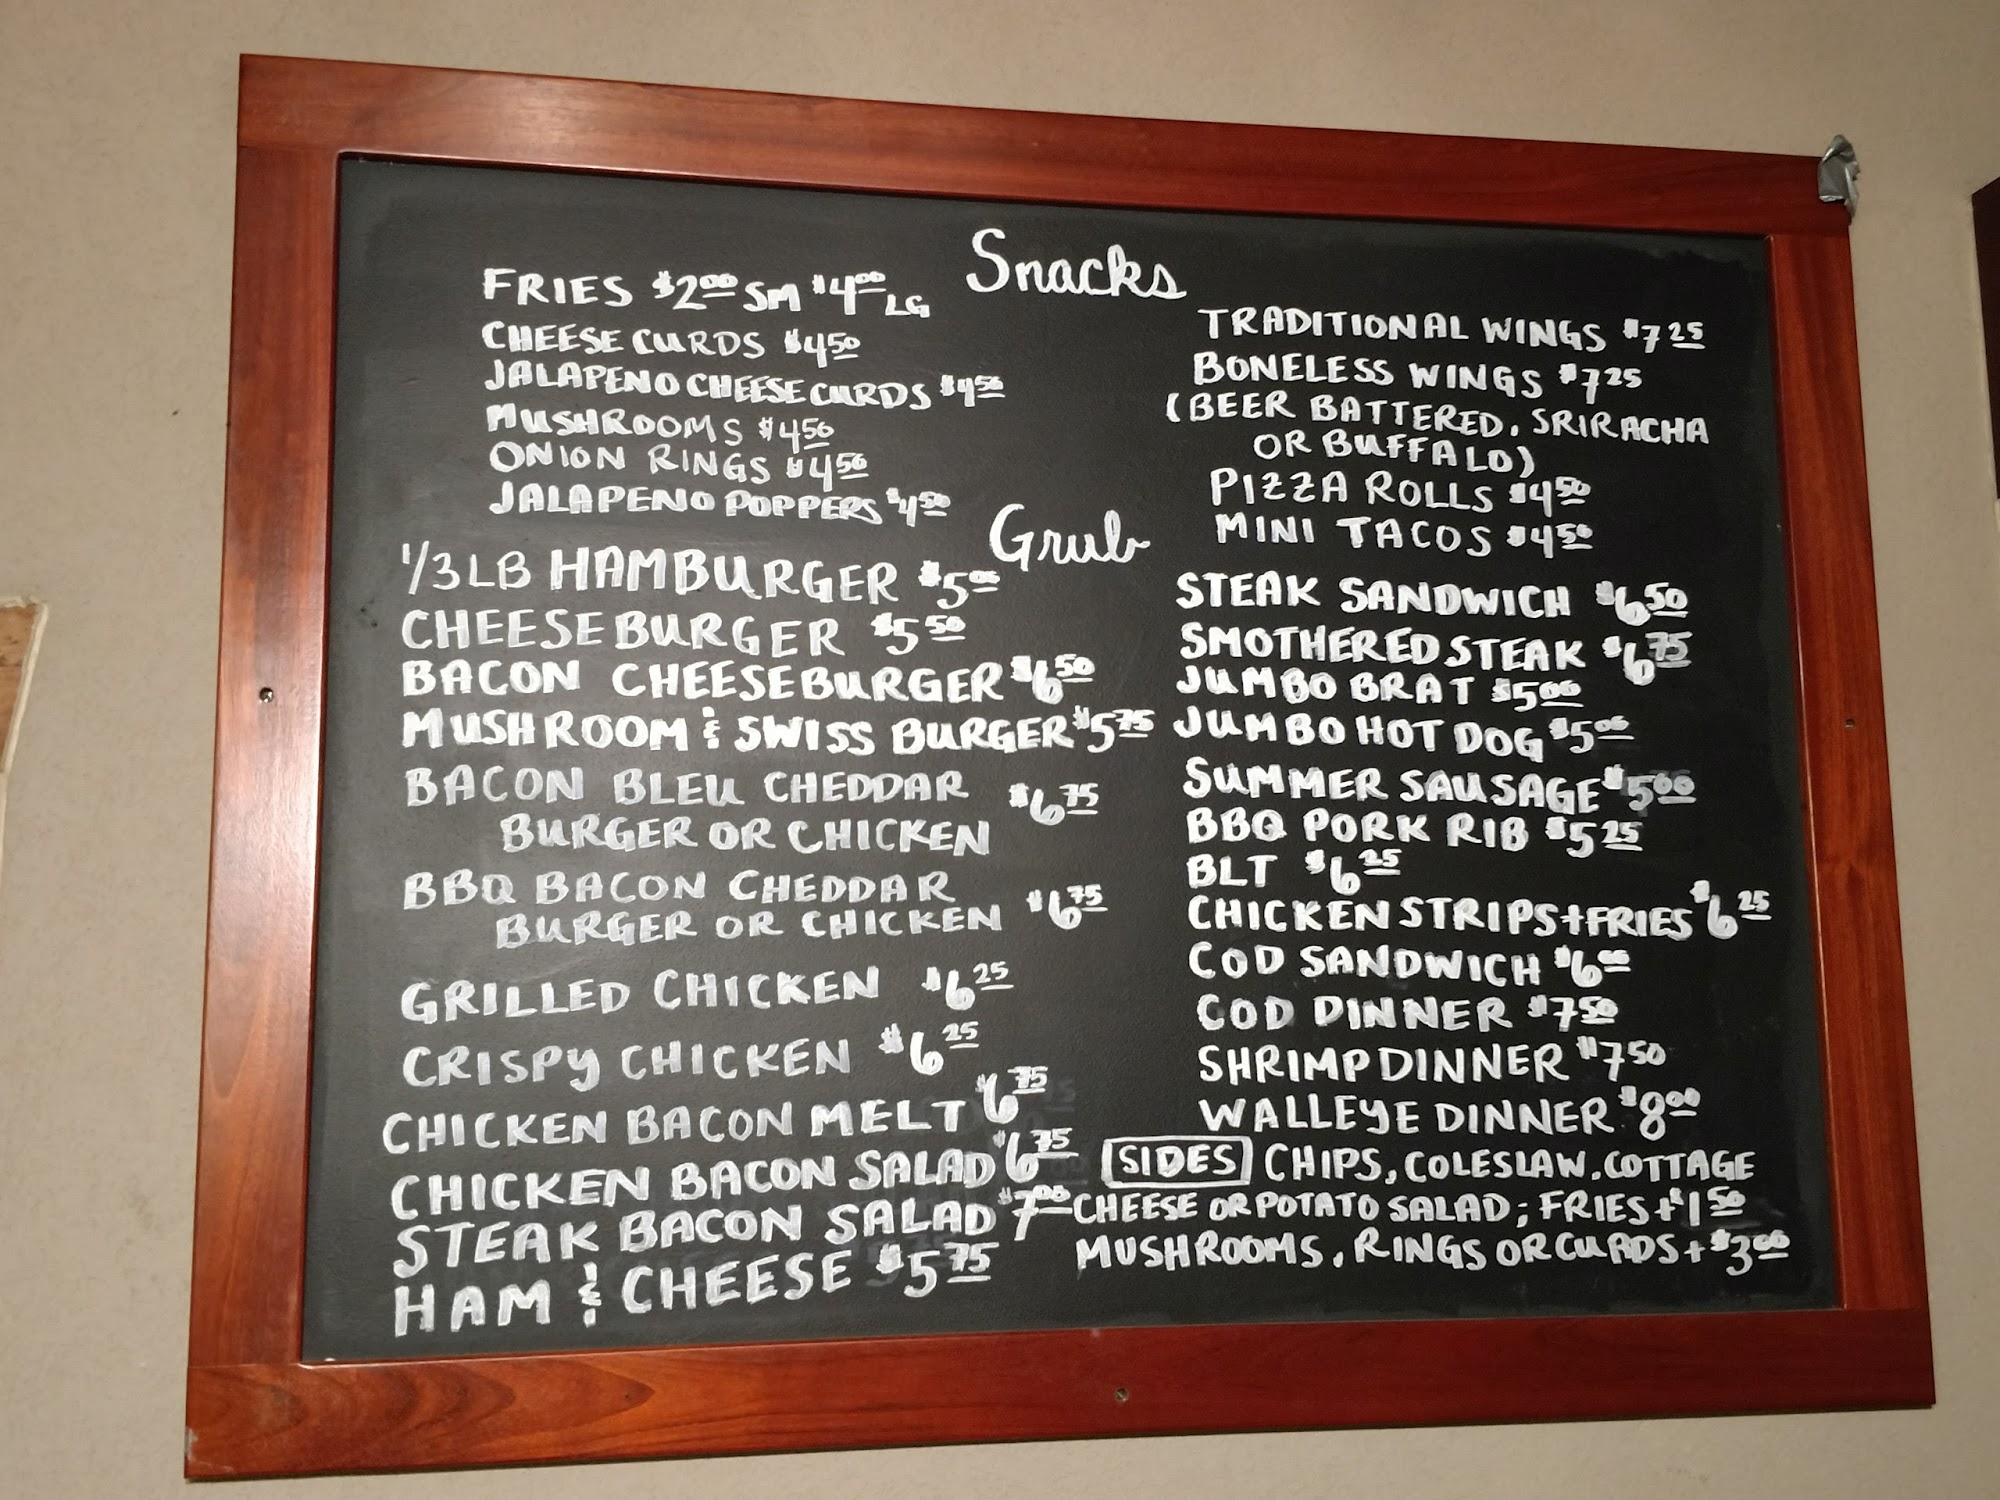 Snacks
FRIES $2.00 SM $4.00 LG
CHEESE CURDS $4.50
JALAPENO CHEESE CURDS $4.50
MUSHROOMS $4.50
ONION RINGS $4.50
JALAPENO POPPERS $4.50
TRADITIONAL WINGS $7.25
BONELESS WINGS $7.25
(BEER BATTERED, SRIRACHA
OR BUFFALO)
PIZZA ROLLS $4.50
MINI TACOS $4.50
Grub
1/3 LB HAMBURGER $5.00
CHEESEBURGER $5.50
BACON CHEESEBURGER $6.50
MUSHROOM & SWISS BURGER $5.75
BACON BLEU CHEDDAR $6.75
BURGER OR CHICKEN
BBQ BACON CHEDDAR
BURGER OR CHICKEN $6.75
GRILLED CHICKEN $6.25
CRISPY CHICKEN $6.25
CHICKEN BACON MELT $6.75
CHICKEN BACON SALAD $6.75
STEAK BACON SALAD $7.00
HAM & CHEESE $5.75
STEAK SANDWICH $6.50
SMOTHERED STEAK $6.75
JUMBO BRAT $5.00
JUMBO HOT DOG $5.00
SUMMER SAUSAGE $5.00
BBQ PORK RIB $5.25
BLT $6.25
CHICKEN STRIPS + FRIES $6.25
COD SANDWICH $6.00
COD DINNER $7.50
SHRIMP DINNER $7.50
WALLEYE DINNER $8.00
SIDES CHIPS, COLESLAW, COTTAGE
CHEESE OR POTATO SALAD; FRIES + $1.50
MUSHROOMS, RINGS OR CURDS + $3.00